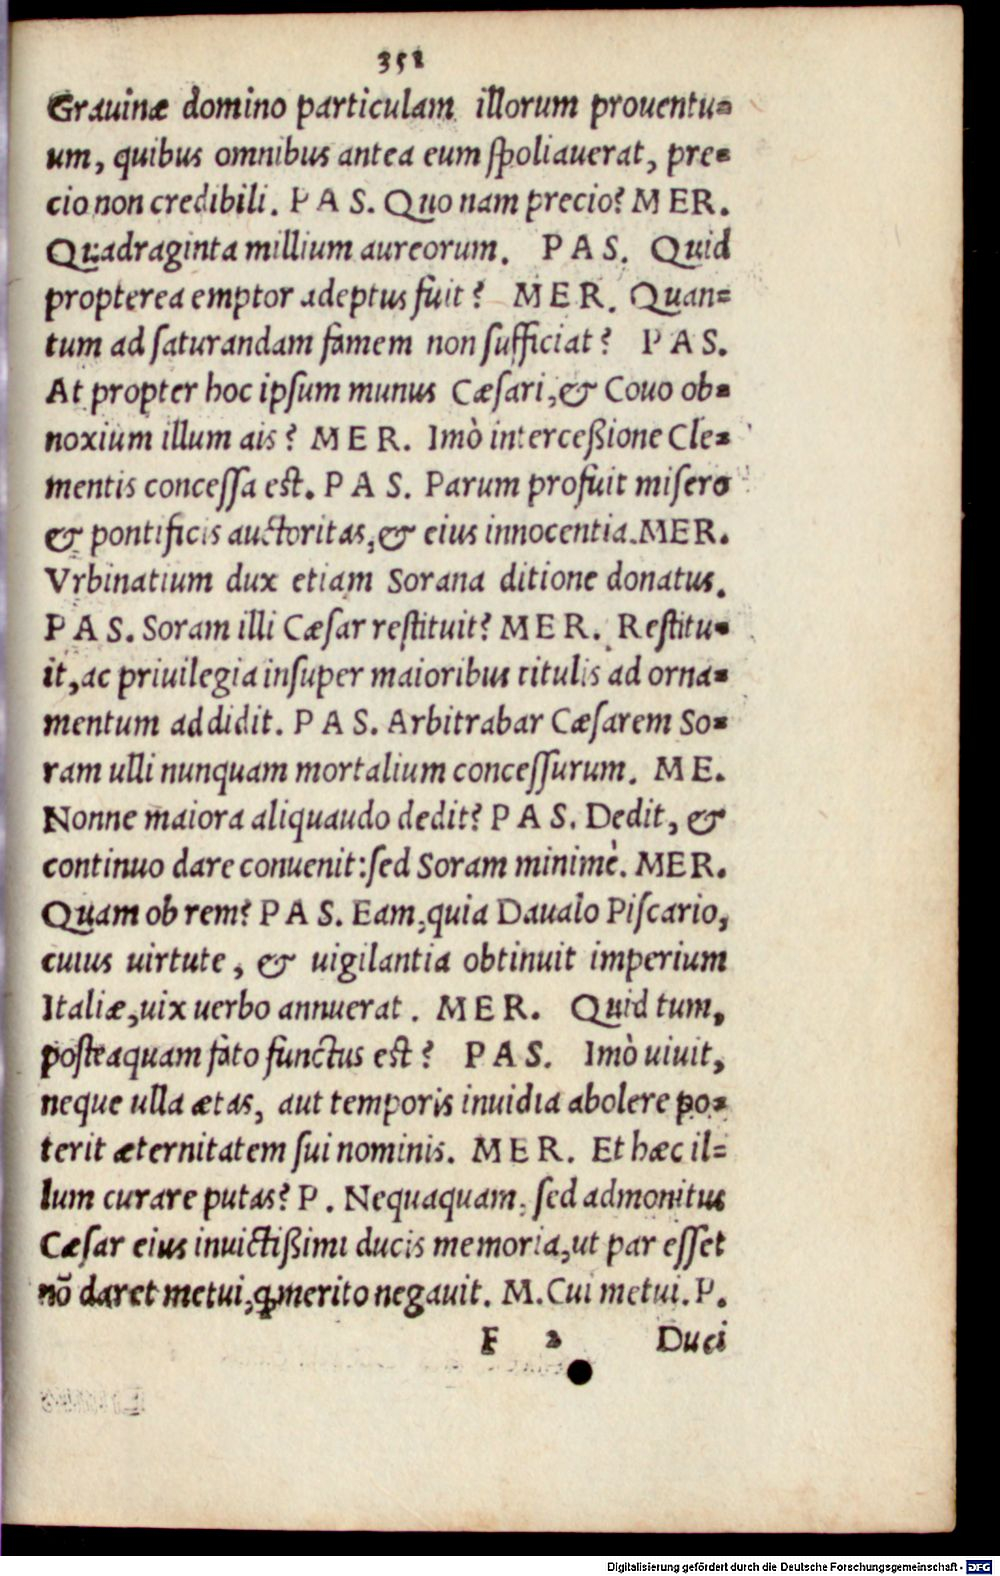 351
Grauinæ domino particulam illorum prouentu=
um, quibus omnibus antea eum ſpoliauerat, pre=
cio non credibili. P A S. Quo nam precio? M ER.
Quadraginta millium aureorum. P A S. Quid
propterea emptor adeptus fuit? M E R. Quan=
tum ad ſaturandam famem non ſufficiat? P A S.
At propter hoc ipſum munus Cæſari, & Couo ob=
noxium illum ais? M E R. Imò interceßione Cle=
mentis conceſſa est. P A S. Parum profuit miſero
& pontificis auctoritas, & eius innocentia. MER.
Vrbinatium dux etiam Sorana ditione donatus.
P A S. Soram illi Cæſar reſtituit? M E R. Reſtitu=
it, ac priuilegia inſuper maioribus titulis ad orna=
mentum addidit. P A S. Arbitrabar Cæſarem So=
ram ulli nunquam mortalium conceſſurum. M E.
Nonne maiora aliquaudo dedit? P A S. Dedit, &
continuo dare conuenit: ſed Soram minimè. MER.
Quam ob rem? P A S. Eam, quia Daualo Piſcario,
cuius uirtute, & uigilantia obtinuit imperium
Italiæ, uix uerbo annuerat. M E R. Quid tum,
poſteaquam fato functus est? P A S. Imò uiuit,
neque ulla ætas, aut temporis inuidia abolere po=
terit æternitatem ſui nominis. M E R. Et hæc il=
lum curare putas? P. Nequaquam, ſed admonitus
Cæſar eius inuictißimi ducis memoria, ut par eſſet
nõ daret metui, ꝙ merito negauit. M. Cui metui. P.
F 2 Duci
Digitalisierung gefördert durch die Deutsche Forschungsgemeinschaft - DFG